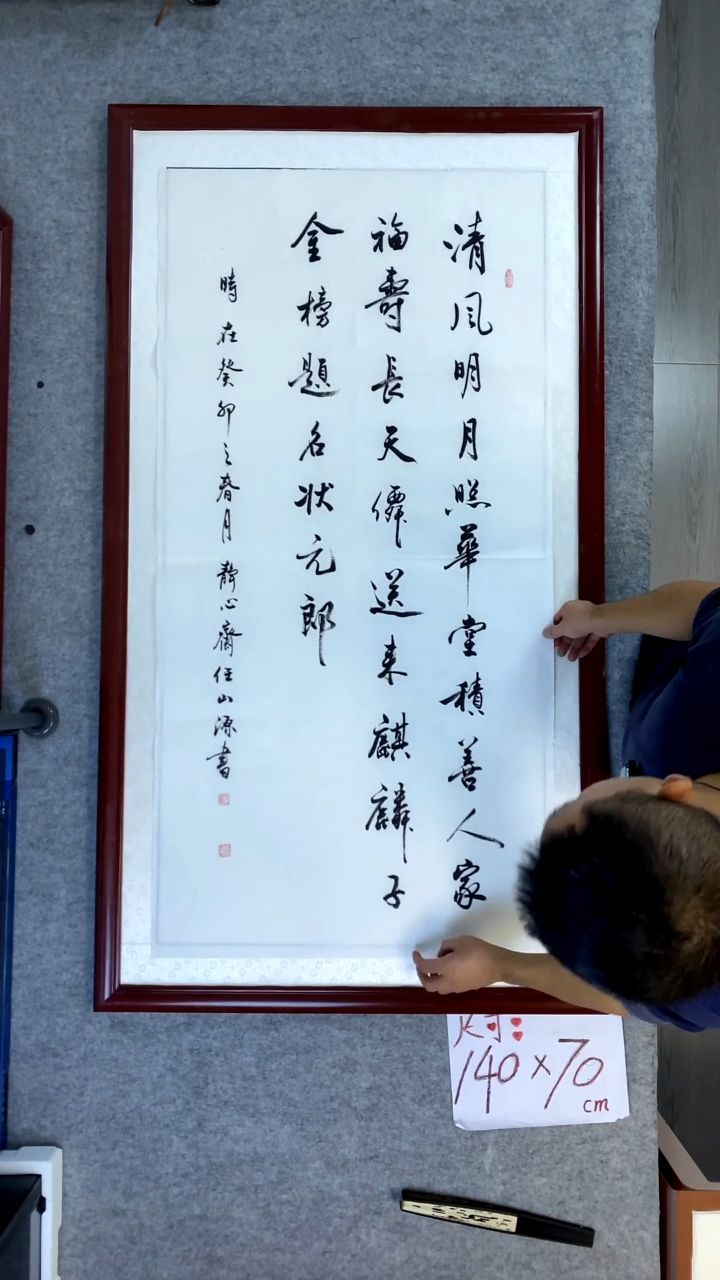 清風明月照華堂積善人家
福壽長天僊送来麒麟子
金榜題名状元郎
時在癸卯之春月靜心齋任山源書
140×70
cm